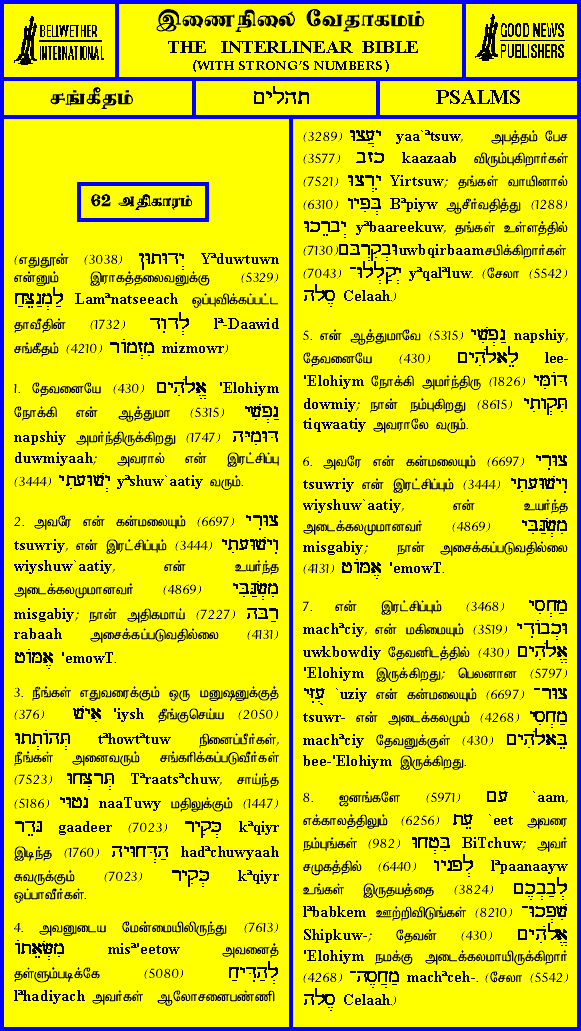 BELLWETHER
INTERNATIONAL
இணைநிலை வேதாகமம்
THE INTERLINEAR BIBLE
(WITH STRONG'S NUMBERS)
GOOD NEWS
PUBLISHERS
சங்கீதம்
תהלים
PSALMS
62 அதிகாரம்
(எதுதூன் (3038) יְדוּתוּן Yᵃduwtuwn
என்னும் இராகத்தலைவனுக்கு (5329)
לַמְנַצֵּחַ Lamᵃnatseeach ஒப்புவிக்கப்பட்ட
தாவீதின் (1732) לְדָוִד lᵃ-Daawid
சங்கீதம் (4210) מִזְמוֹר mizmowr)
1. தேவனையே (430) אֱלֹהִים 'Elohiym
நோக்கி என் ஆத்துமா (5315) נַפְשִׁי
napshiy அமர்ந்திருக்கிறது (1747) דּוּמִיָּה
duwmiyaah; அவரால் என் இரட்சிப்பு
(3444) יְשׁוּעָתִי yᵃshuw`aatiy வரும்.
2. அவரே என் கன்மலையும் (6697) צוּרִי
tsuwriy, என் இரட்சிப்பும் (3444) וִישׁוּעָתִי
wiyshuw`aatiy, என் உயர்ந்த
அடைக்கலமுமானவர் (4869) מִשְׂגַּבִּי
misgabiy; நான் அதிகமாய் (7227) רַבָּה
rabaah அசைக்கப்படுவதில்லை (4131)
אֶמּוֹט 'emowT.
3. நீங்கள் எதுவரைக்கும் ஒரு மனுஷனுக்குத்
(376) אִישׁ 'iysh தீங்குசெய்ய (2050)
תְּהוֹתְתוּ tᵃhowtᵃtuw நினைப்பீர்கள்,
நீங்கள் அனைவரும் சங்கரிக்கப்படுவீர்கள்
(7523) תְּרָצְּחוּ Tᵃraatsᵃchuw, சாய்ந்த
(5186) נָטוּי naaTuwy மதிலுக்கும் (1447)
גָּדֵר gaadeer (7023) כְּקִיר kᵃqiyr
இடிந்த (1760) הַדְּחוּיָה hadᵃchuwyaah
சுவருக்கும் (7023) כְּקִיר kᵃqiyr
ஒப்பாவீர்கள்.
4. அவனுடைய மேன்மையிலிருந்து (7613)
מִשְּׂאֵתוֹ misᵃ'eetow அவனைத்
தள்ளும்படிக்கே (5080) לְהַדִּיחַ
lᵃhadiyach அவர்கள் ஆலோசனைபண்ணி
(3289) יָעֲצוּ yaa`ᵃtsuw, அபத்தம் பேச
(3577) כָזָב kaazaab விரும்புகிறார்கள்
(7521) יִרְצוּ Yirtsuw; தங்கள் வாயினால்
(6310) בְּפִיו Bᵃpiyw ஆசீர்வதித்து (1288)
יְבָרֵכוּ yᵃbaareekuw, தங்கள் உள்ளத்தில்
(7130) וּבְקִרְבָּם uwbqirbaam சபிக்கிறார்கள்
(7043) יְקַלְלוּ־ yᵃqalᵃluw. (சேலா (5542)
סֶלָה Celaah.)
5. என் ஆத்துமாவே (5315) נַפְשִׁי napshiy,
தேவனையே (430) לֵאלֹהִים lee-
'Elohiym நோக்கி அமர்ந்திரு (1826) דּוֹמִּי
dowmiy; நான் நம்புகிறது (8615) תִּקְוָתִי
tiqwaatiy அவராலே வரும்.
6. அவரே என் கன்மலையும் (6697) צוּרִי
tsuwriy என் இரட்சிப்பும் (3444) וִישׁוּעָתִי
wiyshuw`aatiy, என் உயர்ந்த
அடைக்கலமுமானவர் (4869) מִשְׂגַּבִּי
misgabiy; நான் அசைக்கப்படுவதில்லை
(4131) אֶמּוֹט 'emowT.
7. என் இரட்சிப்பும் (3468) מַחְסִי
mach​ᵃciy, என் மகிமையும் (3519) וּכְבוֹדִי
uwkbowdiy தேவனிடத்தில் (430) אֱלֹהִים
'Elohiym இருக்கிறது; பெலனான (5797)
עֻזִּי `uziy என் கன்மலையும் (6697) צוּר־
tsuwr- என் அடைக்கலமும் (4268) מַחְסִי
machᵃciy தேவனுக்குள் (430) בֵּאלֹהִים
bee-'Elohiym இருக்கிறது.
8. ஜனங்களே (5971) עָם `aam,
எக்காலத்திலும் (6256) עֵת `eet அவரை
நம்புங்கள் (982) בִּטְחוּ BiTchuw; அவர்
சமுகத்தில் (6440) לְפָנָיו lᵃpaanaayw
உங்கள் இருதயத்தை (3824) לְבַבְכֶם
lᵃbabkem ஊற்றிவிடுங்கள் (8210) שִׁפְכוּ־
Shipkuw-; தேவன் (430) אֱלֹהִים
'Elohiym நமக்கு அடைக்கலமாயிருக்கிறார்
(4268) מַחֲסֶה־ machᵃceh-. (சேலா (5542)
סֶלָה Celaah.)